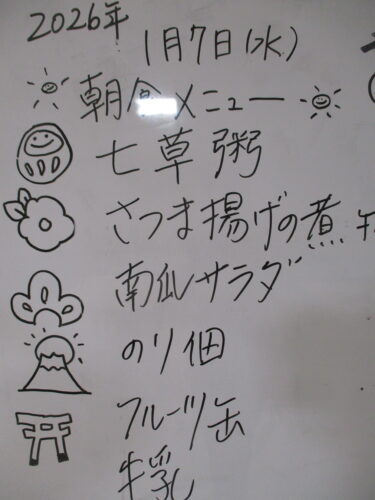 2026年
1月7日(水)
朝食メニュー
七草粥
さつま揚げの煮
南瓜サラダ
のり佃
フルーツ缶
牛乳